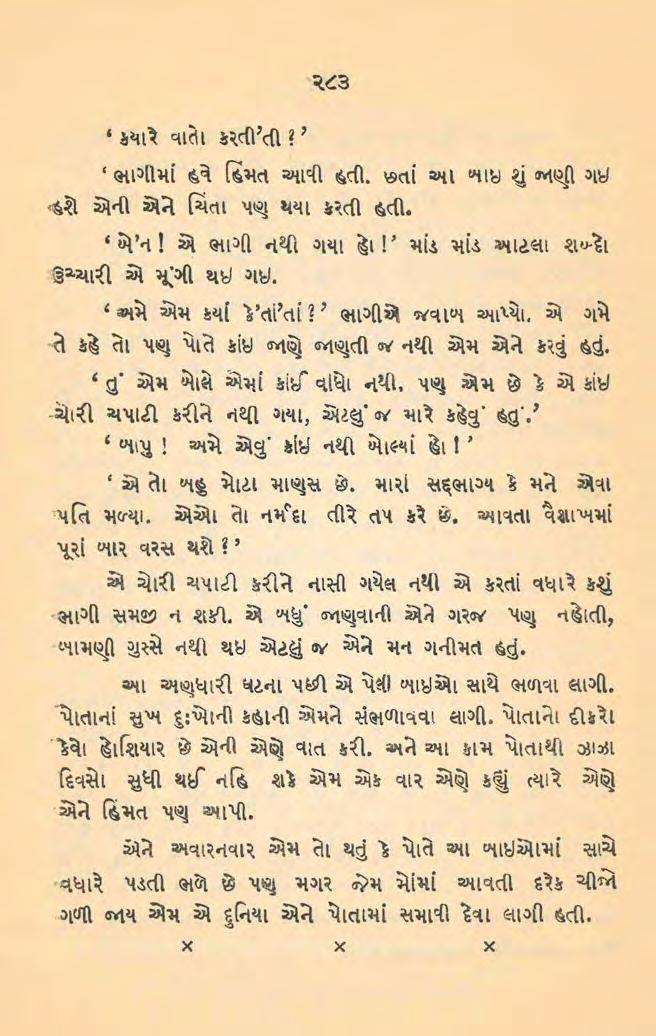 ૨૮૩
‘ કયારે વાતો કરતી’તી ? ’
‘ ભાગીમાં હવે હિંમત આવી હતી. છતાં આ બાઇ શું જાણી ગઇ
હશે એની એને ચિંતા પણ થયા કરતી હતી.
‘ એ’ન ! એ ભાગી નથી ગયા હો !’ માંડ માંડ આટલા શબ્દો
ઉચ્ચારી એ મૂંગી થઇ ગઇ.
‘ અમે એમ કયાં કે’તાં’તાં ? ’ ભાગીએ જવાબ આપ્યો. એ ગમે
તે કહે તો પણ પોતે કાંઇ જાણે જાણતી જ નથી એમ એને કરવું હતું.
‘ તું એમ બોલે એમાં કાંઈ વાંધો નથી, પણ એમ છે કે એ કાંઇ
ચોરી ચપાટી કરીને નથી ગયા, એટલું જ મારે કહેવું હતું.’
‘ બાપુ ! અમે એવું કાંઇ નથી બોલ્યાં હો ! ’
‘ એ તો બહુ મોટા માણસ છે. મારાં સદ્દભાગ્ય કે મને એવા
પતિ મળ્યા. એઓ તો નર્મદા તીરે તપ કરે છે. આવતા વૈશાખમાં
પૂરાં બાર વરસ થશે ? ’
એ ચોરી ચપાટી કરીને નાસી ગયેલ નથી એ કરતાં વધારે કશું
ભાગી સમજી ન શકી. એ બધું જાણવાની એને ગરજ પણ નહોતી,
બામણી ગુસ્સે નથી થઇ એટલું જ એને મન ગનીમત હતું.
આ અણધારી ઘટના પછી એ પેલી બાઇઓ સાથે ભળવા લાગી.
પોતાનાં સુખ દુઃખોની કહાની એમને સંભળાવવા લાગી. પોતાનો દીકરો
કેવો હોશિયાર છે એની એણે વાત કરી. અને આ કામ પોતાથી ઝાઝા
દિવસો સુધી થઈ નહિ શકે એમ એક વાર એણે કહ્યું ત્યારે એણે
એને હિંમત પણ આપી.
એને અવારનવાર એમ તો થતું કે પોતે આ બાઇઓમાં સાચે
વધારે પડતી ભળે છે પણ મગર જેમ મોંમાં આવતી દરેક ચીજો
ગળી જાય એમ એ દુનિયા એને પોતામાં સમાવી દેવા લાગી હતી.
× × ×